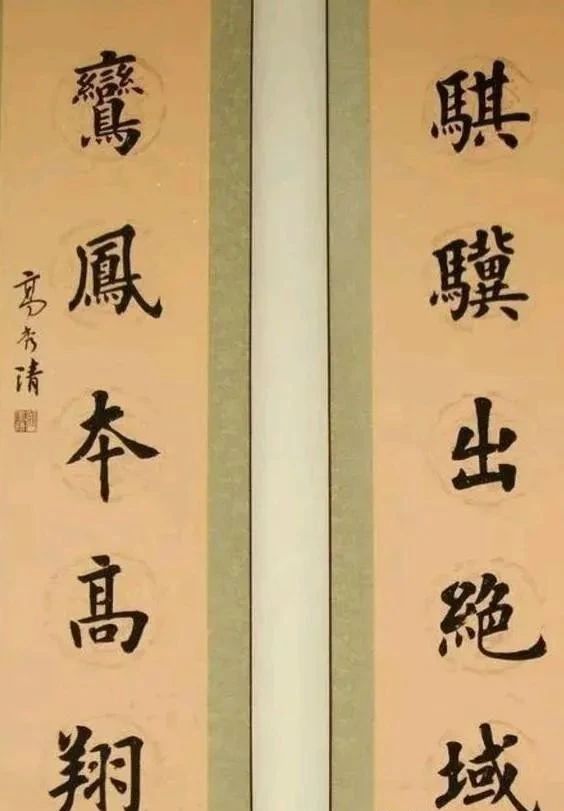 騏驥出絕域
鸞鳳本高翔
高秀清